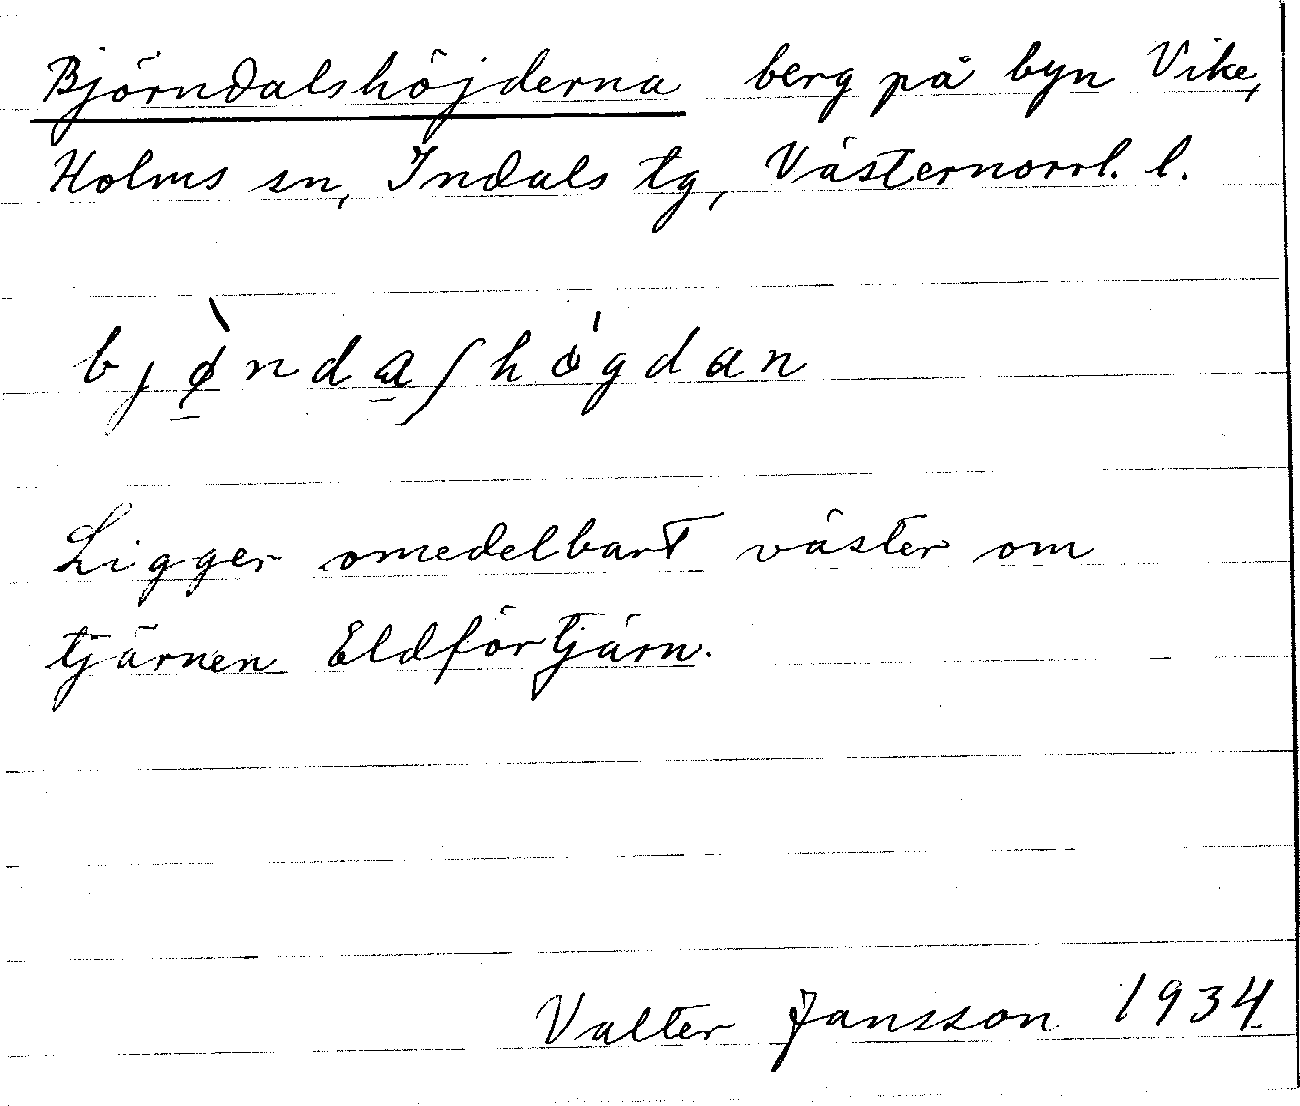 Björndalshöjderna berg på byn Vike,
Holms sn, Indals tg, Västernorrl. l.
bjø̠̀nda̠ʃhö́gdan
Ligger omedelbart väster om
tjärnen Eldförtjärn.
Valter Jansson 1934